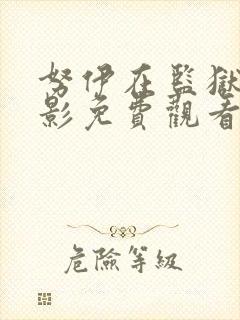 努伊在監獄
影免費觀看
危險等級